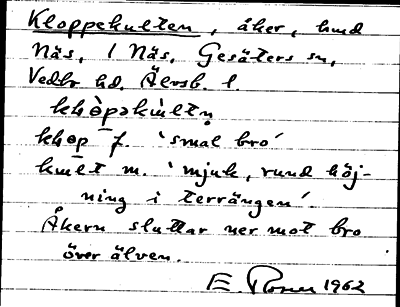 Kloppekulten, åker, hmd
Näs, 1 Näs, Gesäters sn,
Vedbo hd. Älvsb. l.
klȯ̀pəkùltn̥
klɵp f. 'smal bro'
kult m. 'mjuk, rund höj-
ning i terrängen'.
Åkern sluttar ner mot bro
över älven.
E. 1962